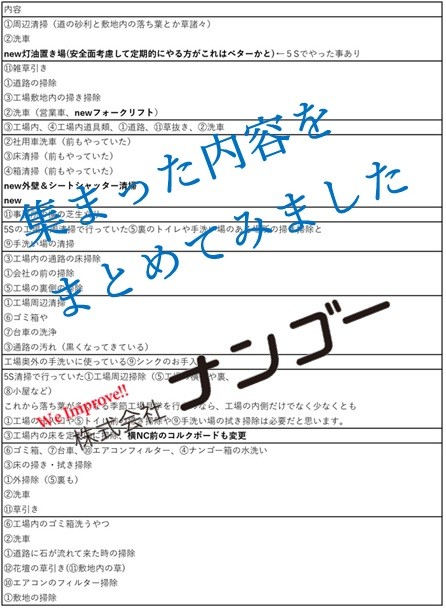 内容
①周辺清掃（道の砂利と敷地内の落ち葉とか草諸々）
②洗車
new灯油置き場(安全面考慮して定期的にやる方がこれはベターかと)←５Sでやった事あり
⑪雑草引き
①道路の掃除
③工場敷地内の掃き掃除
②洗車（営業車、newフォークリフト）
③工場内、④工場内道具類、①道路、⑪草抜き、②洗車
②社用車洗車（前もやっていた）
③床清掃（前もやっていた）
④箱清掃（前もやっていた）
new外壁＆シートシャッター清掃
new
⑪事 の芝生
5Sの工場 清掃で行っていた⑤裏のトイレや手洗い場のある場所の掃き掃除と
⑨手洗い場の清掃
③工場内の通路の床掃除
①会社の前の掃除
⑤工場の裏側の掃除
①工場周辺清掃
⑥ゴミ箱や
⑦台車の洗浄
③通路の汚れ（黒くなってきている）
工場奥外の手洗いに使っている⑨シンクのお手入
5S清掃で行っていた①工場周辺掃除（⑤工場 や裏、
⑧小屋など）
これから落ち葉が 季節工場見学を行 なら、工場の内側だけでなく少なくとも
①工場の ⑤トイレ 掃除や⑨手洗い場の拭き掃除は必要だと思います。
③工場内の床を定 掃除、横NC前のコルクボードも変更
⑥ゴミ箱、⑦台車、⑩エアコンフィルター、④ナンゴー箱の水洗い
③床の掃き・拭き掃除
①外掃除（⑤裏も）
②洗車
⑪草引き
⑥工場内のゴミ箱洗うやつ
②洗車
①道路に石が流れて来た時の掃除
⑫花壇の草引き(⑪敷地内の草)
⑩エアコンのフィルター掃除
①敷地の掃除
集まった内容を
まとめてみました
We Improve!!
株式会社ナンゴー